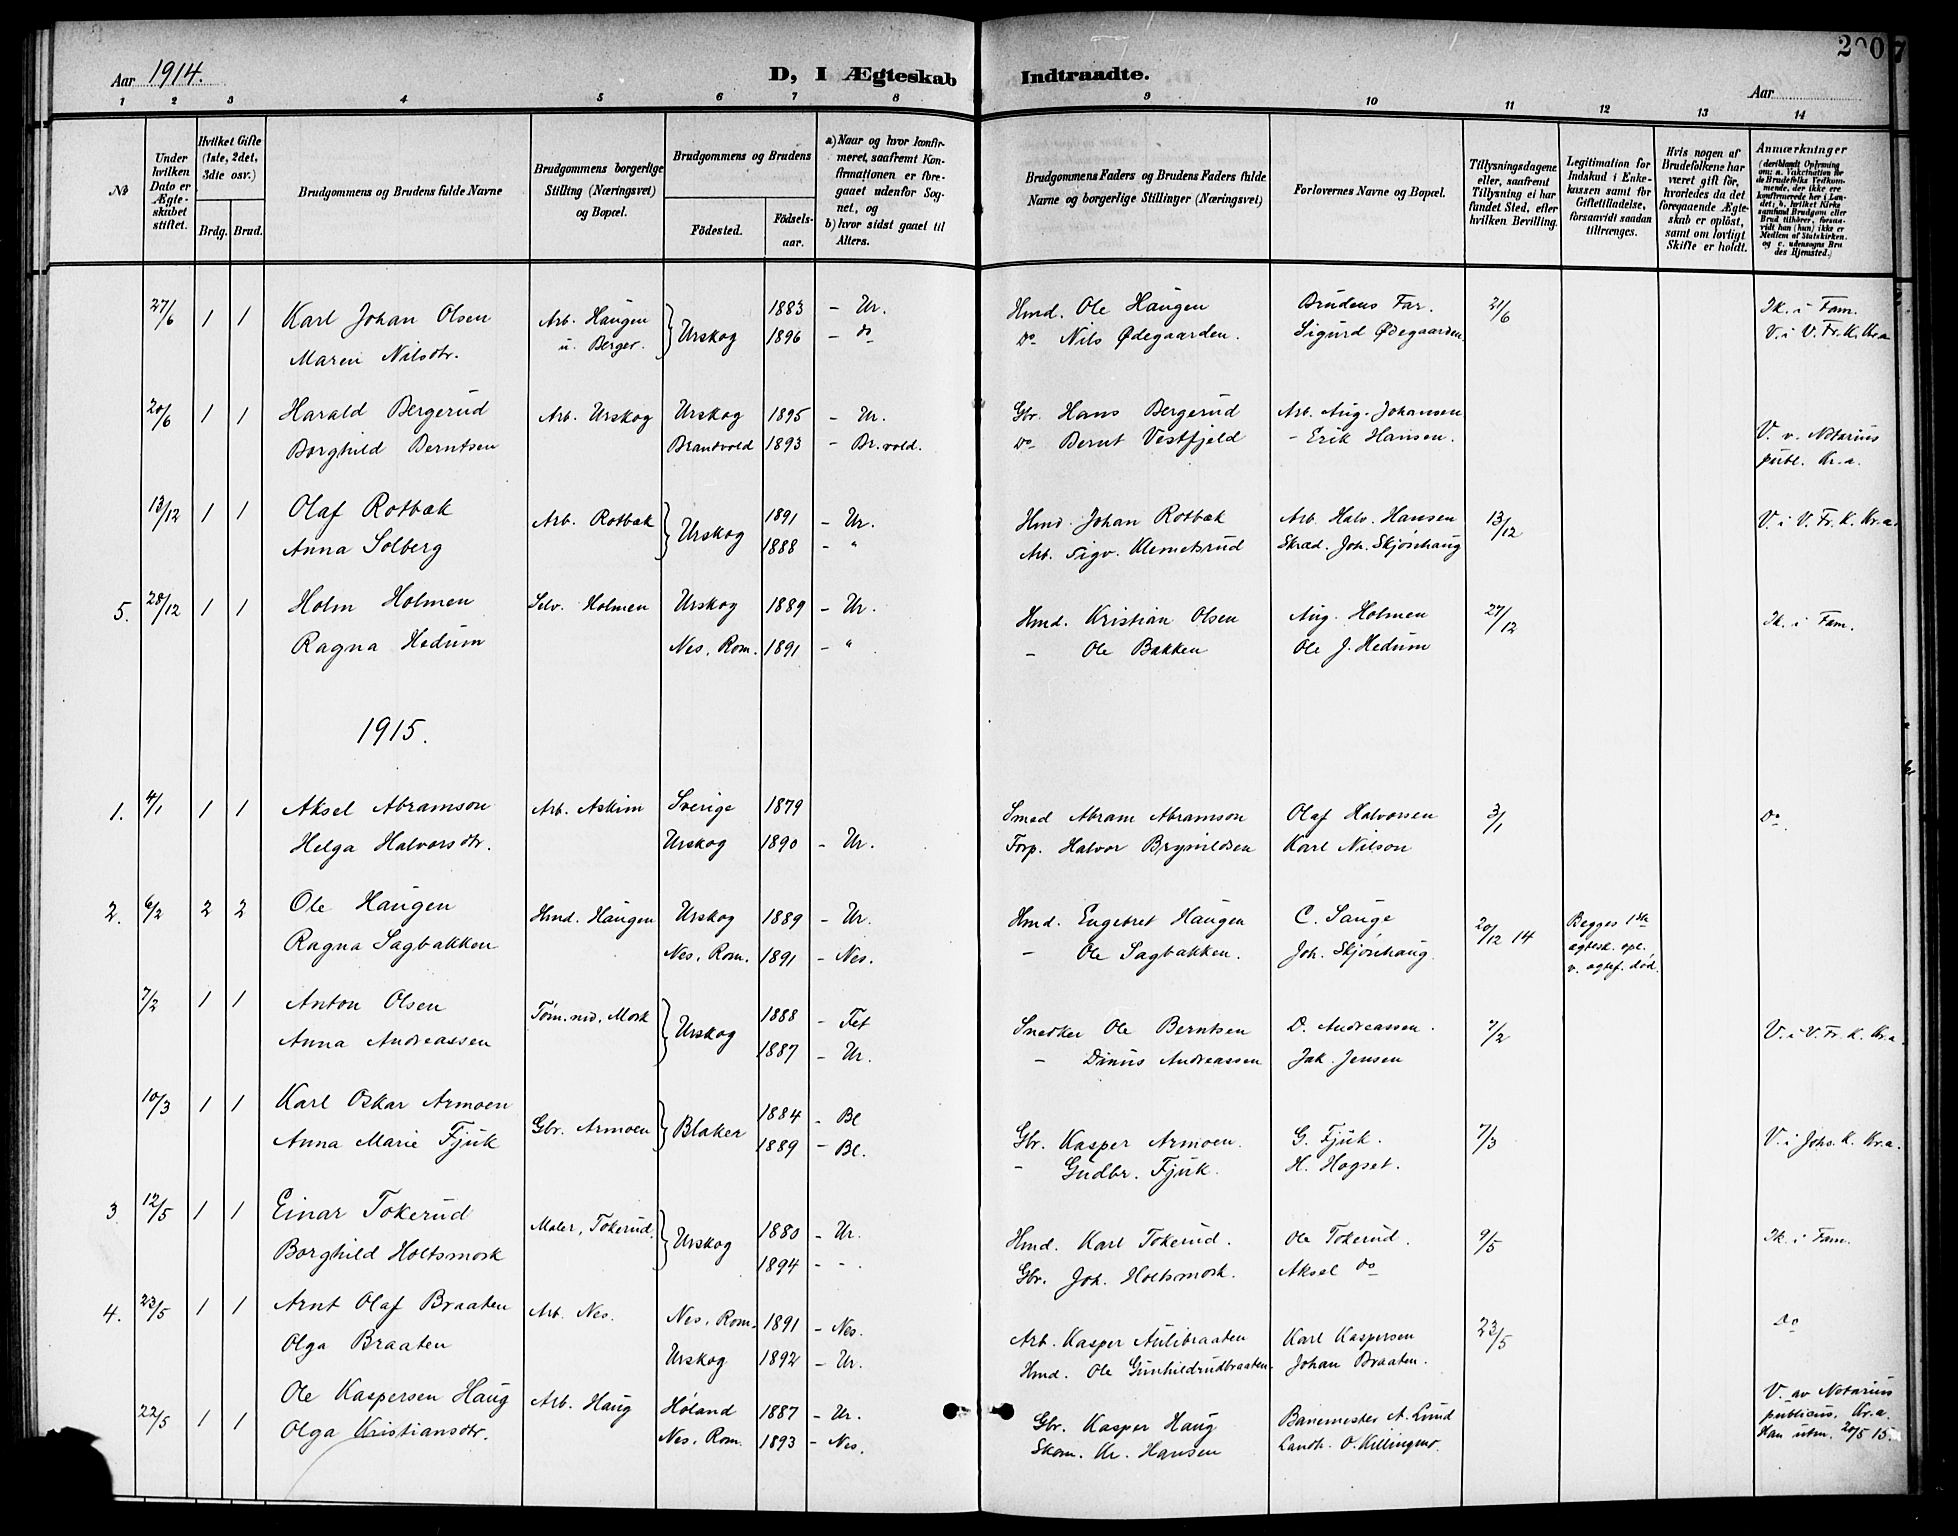 200
Aar 1914. D, I Ægteskab Indtraadte. Aar
1 2 3 4 5 6 7 8 9 10 11 12 13 14
No
Under hvilken Dato er Ægteskabet stiftet.
Hvilket Gifte (1ste, 2det, 3die osv.)
Brdg. Brud.
Brudgommens og Brudens fulde Navne
Brudgommens borgerlige Stilling (Næringsvei) og Bopæl.
Brudgommens og Brudens
Födested. Födselsaar.
a) Naar og hvor konfirmeret, saafremt Konfirmationen er foregaaet udenfor Sognet, og
b) hvor sidst gaaet til Alters.
Brudgommens Faders og Brudens Faders fulde Navne og borgerlige Stillinger (Næringsvei)
Forlovernes Navne og Bopæl.
Tillysningsdagene eller, saafremt Tillysning ei har fundet Sted, efter hvilken Bevilling.
Legitimation for Indskud i Enkekassen samt for Giftetilladelse, forsaavidt saadan tiltrænges.
Hvis nogen af Brudefolkene har været gift før, hvorledes da det foregaaende Ægteskab er oplöst, samt om lovligt Skifte er holdt.
Anmærkninger
(deriblandt Oplysning om: a. Vakcination for de Brudefolks Vedkommende, der ikke ere konfirmerede her i Landet; b. hvilket Kirkesamfund Brudgom eller Brud tilhörer, forsaavidt han (hun) ikke er Medlem af Statskirken, og c. udensogns Brudes Hjemsted.)
27/6 1 1 Karl Johan Olsen Arb. Haugen Urskog 1883 - Ur. Hmd. Ole Haugen Brudens Far. 21/6 Ik. i Fam.
Maren Nilsdtr. u. Berger. 1896 - do Do Nils Ødegaarden. Sigurd Ødegaarden V. i V. Fr. K. Kr.a
20/6 1 1 Harald Bergerud Arb. Urskog Urskog 1895 - Ur. Gbr. Hans Bergerud Arb. Aug. Johansen
Borghild Berntsen Brandvold 1893 - Br.vold. Do Bernt Vestfjeld - Erik Hansen. V. v. Notarius
publ. Kr.a.
13/12 1 1 Olaf Rotbæk Arb. Rotbæk Urskog 1891 - Ur. Hmd. Johan Rotbæk Arb. Halv. Hansen 13/12 V. i V. Fr. K. Kr.a.
Anna Solberg 1888 - " Arb. Sigv. Klemetsrud Skræd. Joh. Skjønhaug
5. 28/12 1 1 Holm Holmen Selv. Holmen Urskog 1889 - Ur. Hmd. Kristian Olsen Aug. Holmen 27/12 Ik. i Fam.
Ragna Hedum Nes, Rom. 1891 - " - Ole Bakken Ole J. Hedum
1915.
1. 4/1 1 1 Aksel Abramson Arb. Askim Sverige 1879 Smed Abram Abramson Olaf Halvorsen 3/1 Do.
Helga Halvorsdtr. Urskog 1890 - Ur. Forp. Halvor Brynildsen Karl Nilson
2. 6/2 2 2 Ole Haugen Hmd. Haugen Urskog 1889 - Ur. Hmd. Engebret Haugen C. Sauge 20/12 14 Begges 1ste
Ragna Sagbakken Nes, Rom. 1891 - Nes. - Ole Sagbakken. Joh. Skjønhaug. egtesk. opl.
v. egtef. död.
7/2 1 1 Anton Olsen Tøm. Mork Urskog 1888 - Fet Snedker Ole Berntsen D. Andreassen. 7/2 V. i V. Fr. K. Kr.a.
Anna Andreassen 1887 - Ur. - Dinus Andreassen Jak. Jensen
10/3 1 1 Karl Oskar Armoen Gbr. Armoen Blaker 1884 - Bl Gbr. Kasper Armoen. G. Fjuk. 7/3 V. i Johs. K. Kr.a.
Anna Marie Fjuk 1889 - Bl. - Gudbr. Fjuk. H. Hogset.
3. 12/5 1 1 Einar Tokerud Maler, Tokerud. Urskog 1880 - Ur. Hmd. Karl Tokerud. Ole Tokerud. 9/5 Ik. i Fam.
Borghild Holtsmork 1894 - - . Gbr. Joh. Holtsmork. Aksel do
4. 23/5 1 1 Arnt Olaf Braaten Arb. Nes. Nes, Rom. 1891 - Nes. Arb. Kasper Aulibraaten Karl Kaspersen 23/5 Do
Olga Braaten Urskog 1892 - Ur. Hmd. Ole Gunhildrudbraaten. Johan Braaten.
22/5 1 1 Ole Kaspersen Haug Arb. Haug Høland 1887 - Ur. Gbr. Kasper Haug Banemester A. Lund V. av Notarius
Olga Kristiansdtr. Nes. Rom. 1893 - Nes. Skom. Kr. Hansen Landh. O. Killingmo. publicus, Kr.a.
Han utm. 20/5 15.